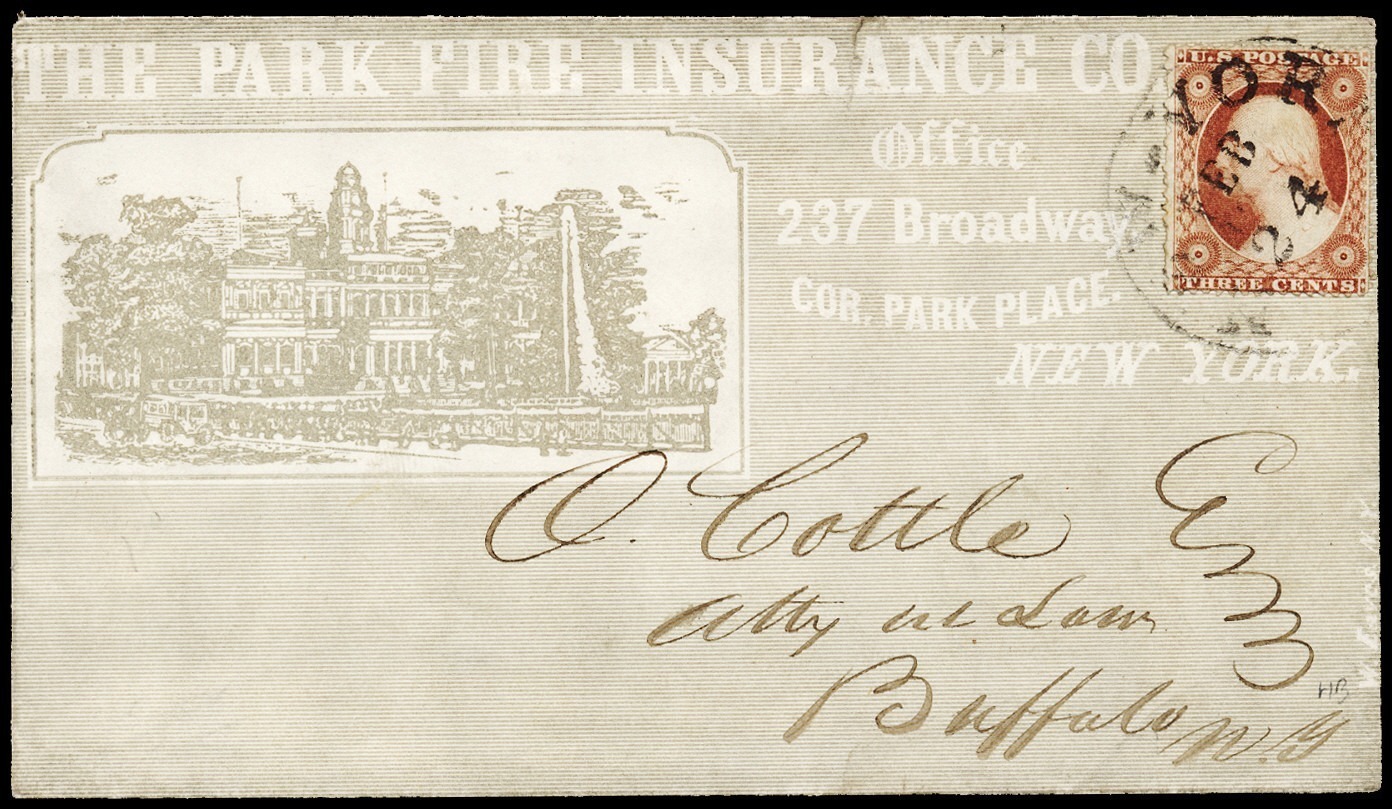 THE PARK FIRE INSURANCE CO
Office
237 Broadway,
COR. PARK PLACE.
NEW YORK.
U.S. POSTAGE
THREE CENTS
YORK
FEB
24
O. Cottle Esq
Atty at Law
Buffalo N.Y
HB